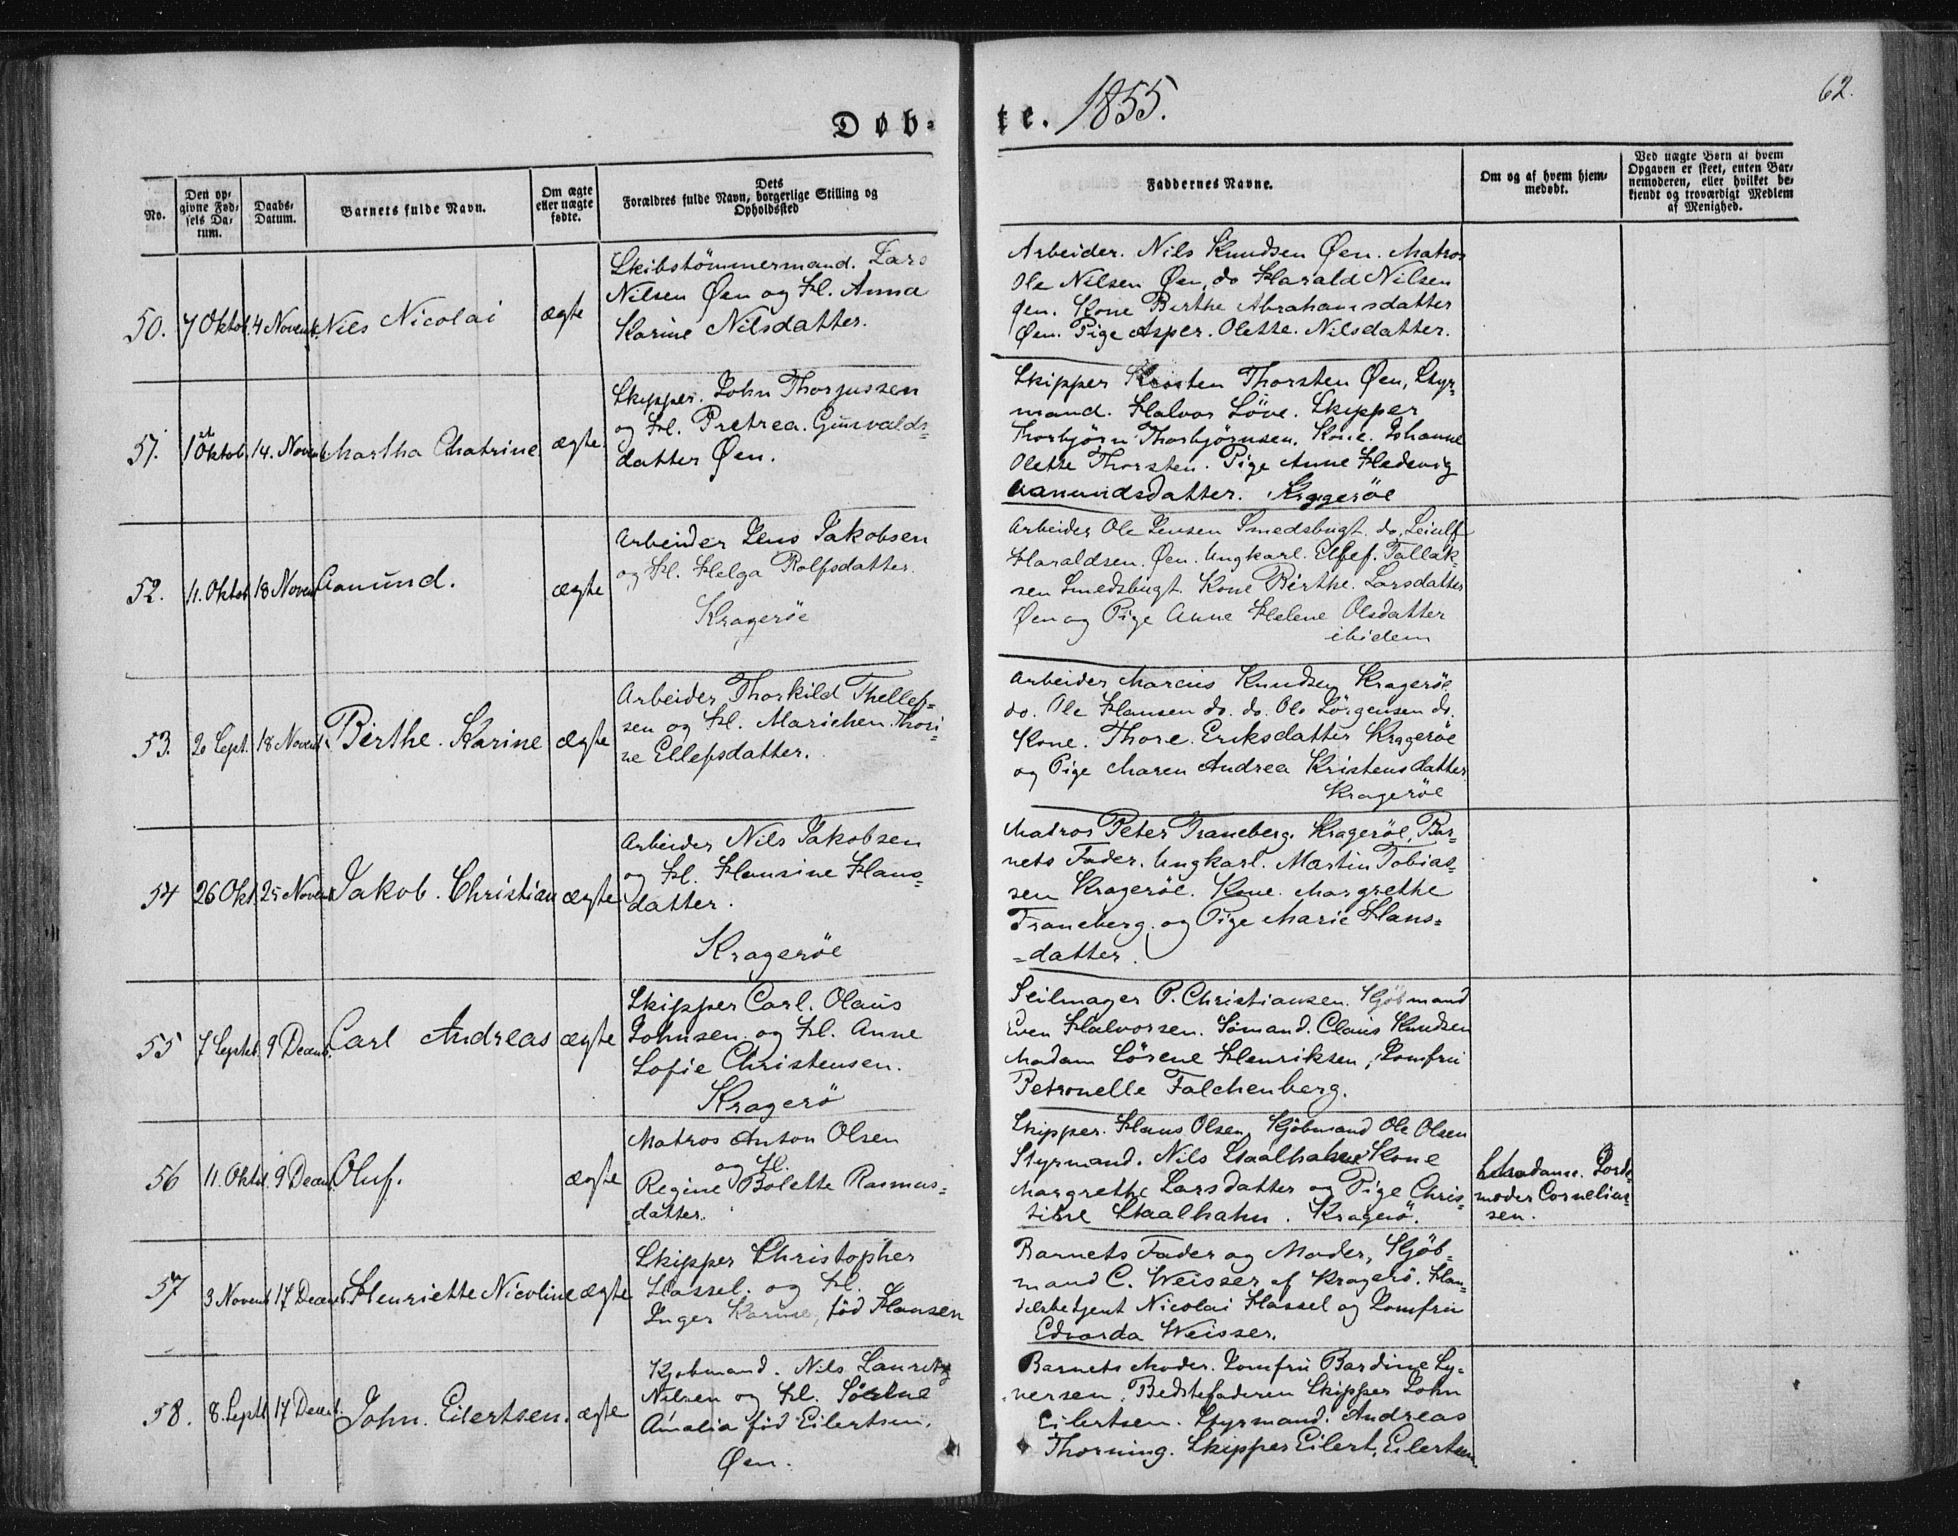 Døb-
te. 1855.
62.
No.
Den op-
givne Fød-
sels Da-
tum.
Daabs-
Datum.
Barnets fulde Navn.
Om ægte
eller uægte
fødte.
Dets
Forældres fulde Navn, borgerlige Stilling og
Opholdssted
Faddernes Navne.
Om og af hvem hjem-
medøbt.
Ved uægte Børn af hvem
Opgaven er skeet, enten Bar-
nemoderen, eller hvilket be-
kjendt og troværdigt Medlem
af Menighed.
50. 7 Oktob. 4 Novemb. Nils Nicolai ægte
Skibstömmermand. Lars
Nilsen Øen og H. Anna
Karine Nilsdatter.
Arbeider. Nils Knudsen Øen. Matros
Ole Nilsen Øen, do Harald Nilsen
Øen. Kone Berthe Abrahamsdatter
Øen. Pige Asper. Olette. Nilsdatter.
51. 1st Oktob. 14. Novemb. Martha Chatrine ægte.
Skipper. John Thorjussen
og H. Pretrea. Gunvalds-
datter Øen.
Skipper Krosten Thorsten Øen, Styr-
mand. Halvor Löve. Skipper
Thorbjörn Thorbjörnsen. Kone. Johanne
Olette Thorsten. Pige Anne Hedevig
Aanundsdatter. Kragerøe
52. 11. Oktob. 18 Novemb. Aanund. ægte
Arbeider Jens Jakobsen
og H. Helga Rolfsdatter.
Kragerøe
Arbeider Ole Jensen Smedsbugt. do. Leiulf
Haraldsen. Øen. Ungkarl. Ellef. Tallak-
sen Smedsbugt. Kone Berthe. Larsdatter
Øen og Pige Anne Helene Olsdatter
ibidem
53. 20 Sept. 18 Novemb. Berthe. Karine ægte
Arbeider Thorkild Thellef-
sen og H. Marichen Thori-
ne Ellefsdatter.
Arbeider Marcus Knudsen Kragerøe
do. Ole Hansen do. do. Ole Jörgensen do.
Kone. Thore. Eriksdatter Kragerøe
og Pige Maren Andrea Kristensdatter
Kragerøe
54 26 Okt. 25 Novemb. Jakob. Christian ægte
Arbeider Nils Jakobsen
og H. Hansine Hans-
datter.
Kragerøe
Matros Peter Traneberg. Kragerøe, Bar-
nets Fader. Ungkarl. Martin Tobias-
sen Kragerøe. Kone. Margrethe
Traneberg. og Pige Marie Hans-
-datter.
55 7 Septb. 9 Decemb. Carl Andreas ægte
Skipper Carl. Olaus
Johnsen og H. Anne
Sofie Christensen.
Kragerö
Seilmager P. Christiansen. Kjöbmand
Even Halvorsen. Sömand. Claus Knudsen
Madam Sörene Henriksen, Jomfru
Petronelle Falchenberg.
56 11. Oktb. 9 Decemb. Oluf. ægte
Matros Anton Olsen
og H.
Regine Bolette Rasmus-
datter.
Skipper. Hans Olsen, Kjöbmand Ole Olsen
Styrmand. Nils Staalhahn Kone
Margrethe Larsdatter og Pige Chris-
tine Staalhahn. Kragerö.
Madame. Jorde-
moder Cornelius-
sen.
57 3 Novemb. 17 Decemb. Henriette Nicoline ægte
Skipper Christopher
Hassel. og H.
Inger Karine, föd Hansen
Barnets Fader og Moder, Kjöb-
mand C. Weisser af Kragerö. Han-
delsbetjent Nicolai Hassel og Jomfru
Edvarda Weisser.
58. 8. Septb. 17 Decemb. John. Eilertsen. ægte
Kjøbmand. Nils Lauritz
Nilsen og H. Sörine
Amalia föd Eilertsen.
Øen.
Barnets Moder. Jomfru Bardine Sy-
versen. Bedstefaderen Skipper John
Eilertsen. Styrmand. Andreas
Thorning. Skipper Eilert. Eilertsen